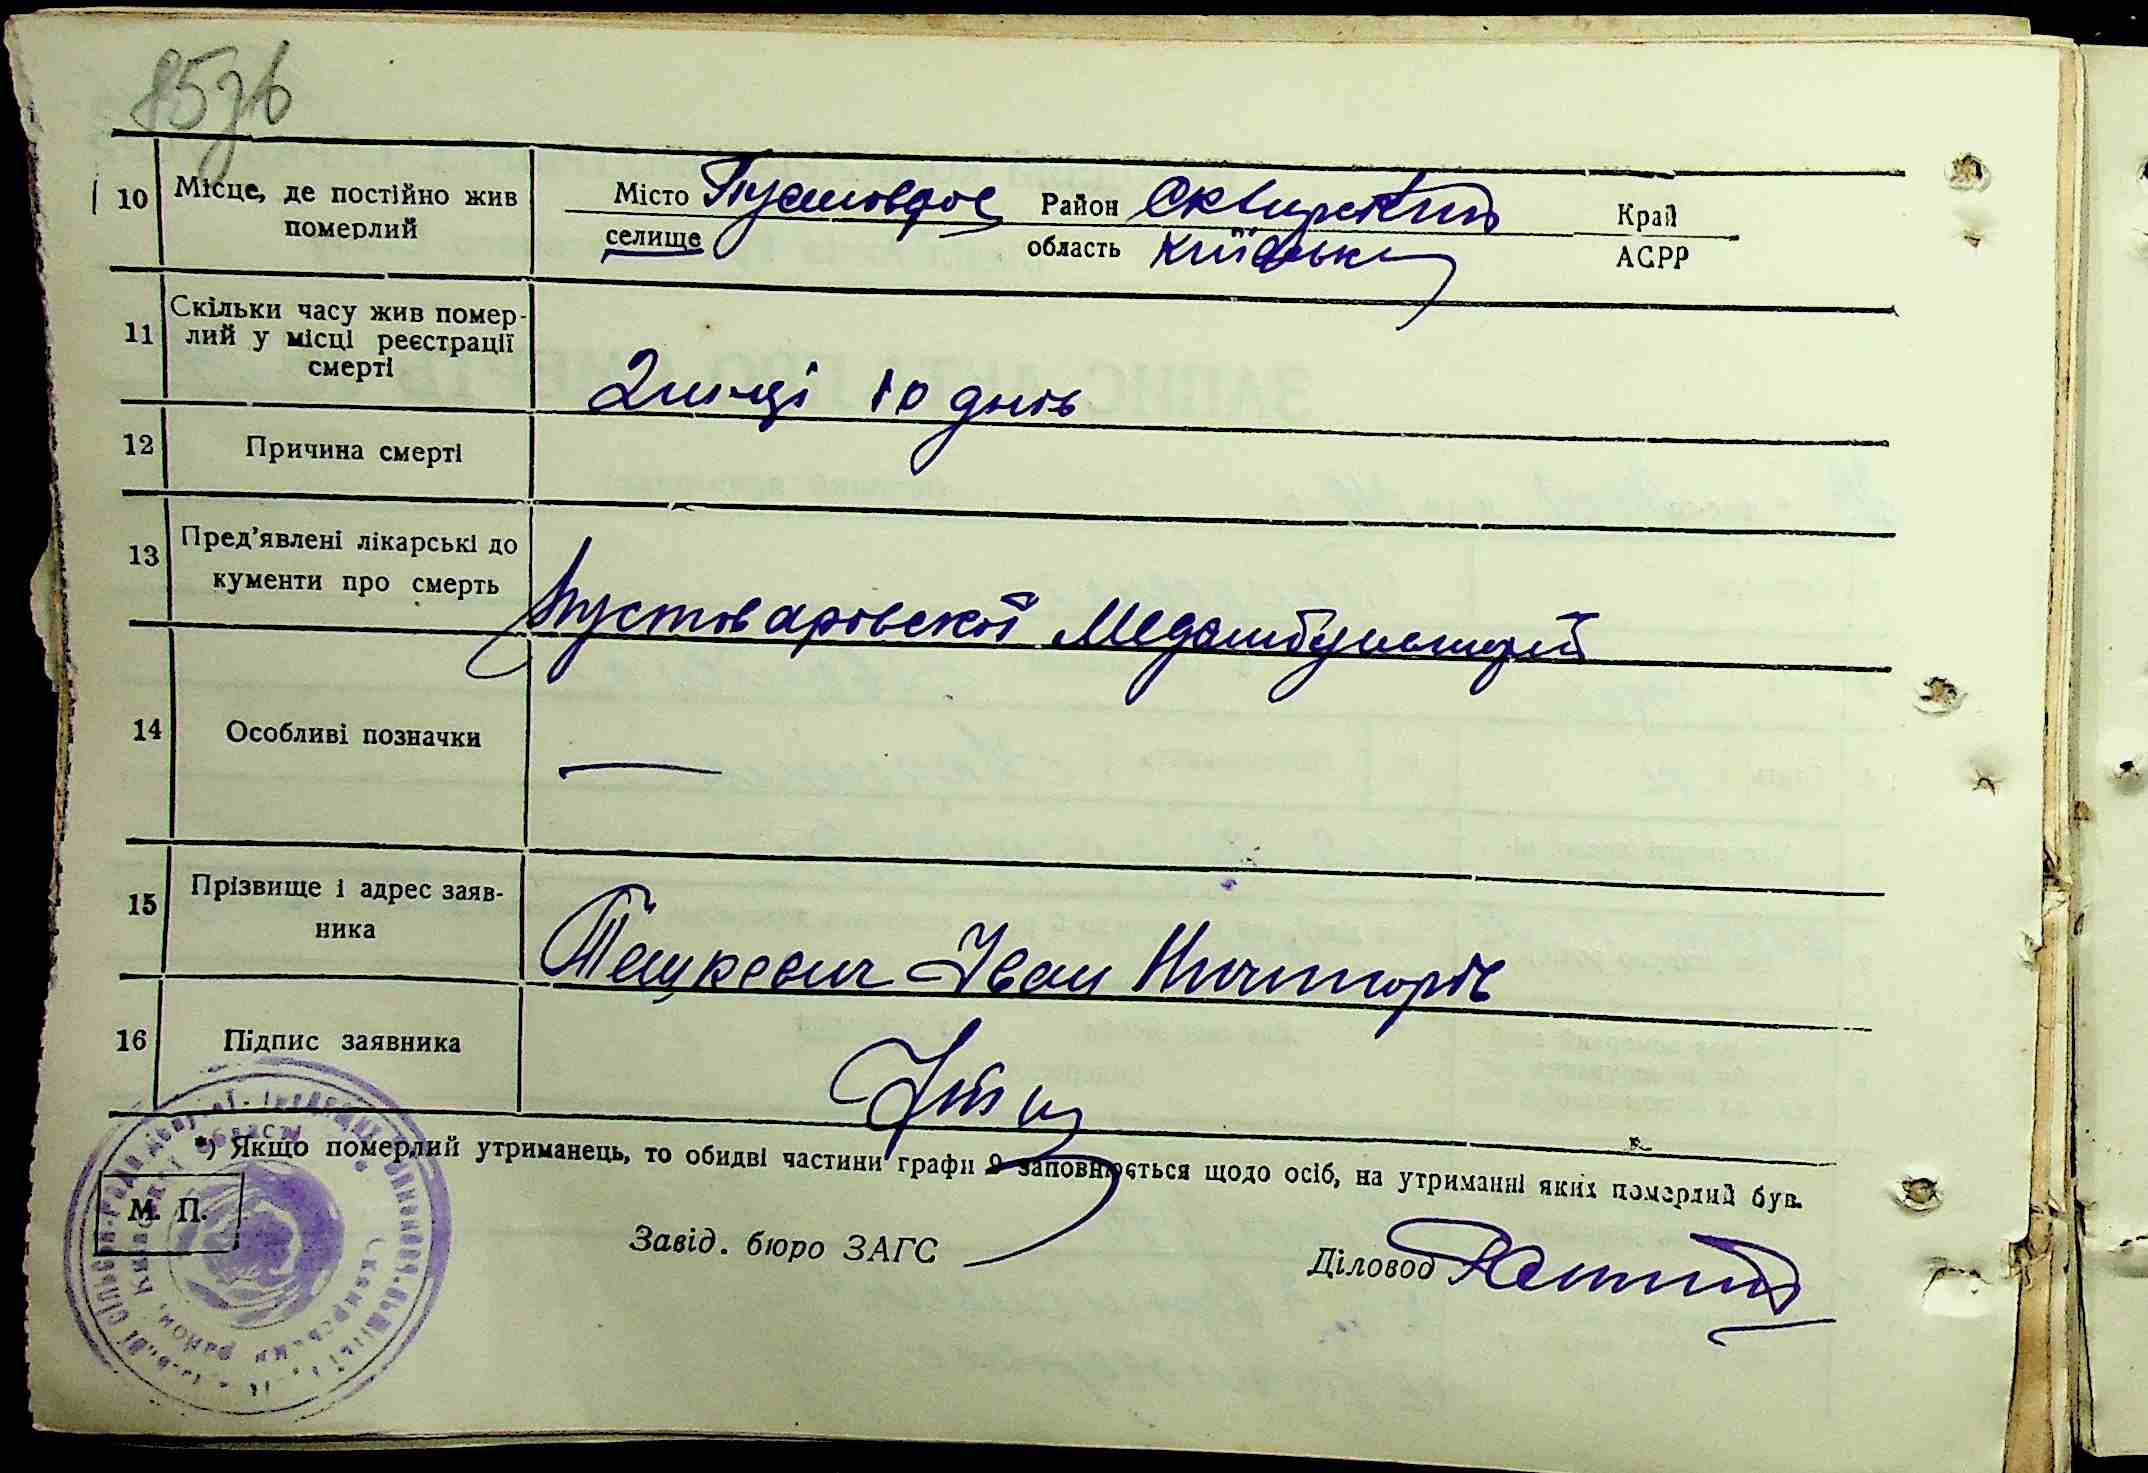 85зв
10 Місце, де постійно жив
померлий
Місто Район Сквирський Край
селище область Київськ АСРР
11 Скільки часу жив помер-
лий у місці реєстрації
смерті
2 м-ці 10 днів
12 Причина смерті
13 Пред’явлені лікарські до
кументи про смерть
Пустоваровской Медамбулаторії
14 Особливі позначки
—
15 Прізвище і адрес заяв-
ника
Іван
16 Підпис заявника
*) Якщо померлий утриманець, то обидві частини графи 9 заповнюється щодо осіб, на утриманні яких померлий був.
М. П.
Завід. бюро ЗАГС
Діловод